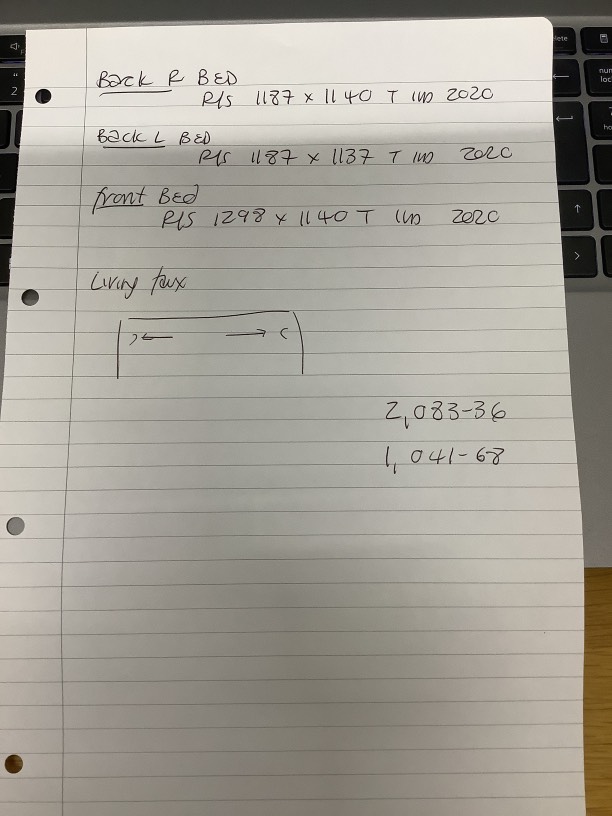 Back R BED
R/S 1187 x 1140 T 110 2020
Back L BED
R/S 1187 x 1137 T 110 2020
front BED
R/S 1298 x 1140 T 110 2020
Living faux
2,083-36
1,041-68